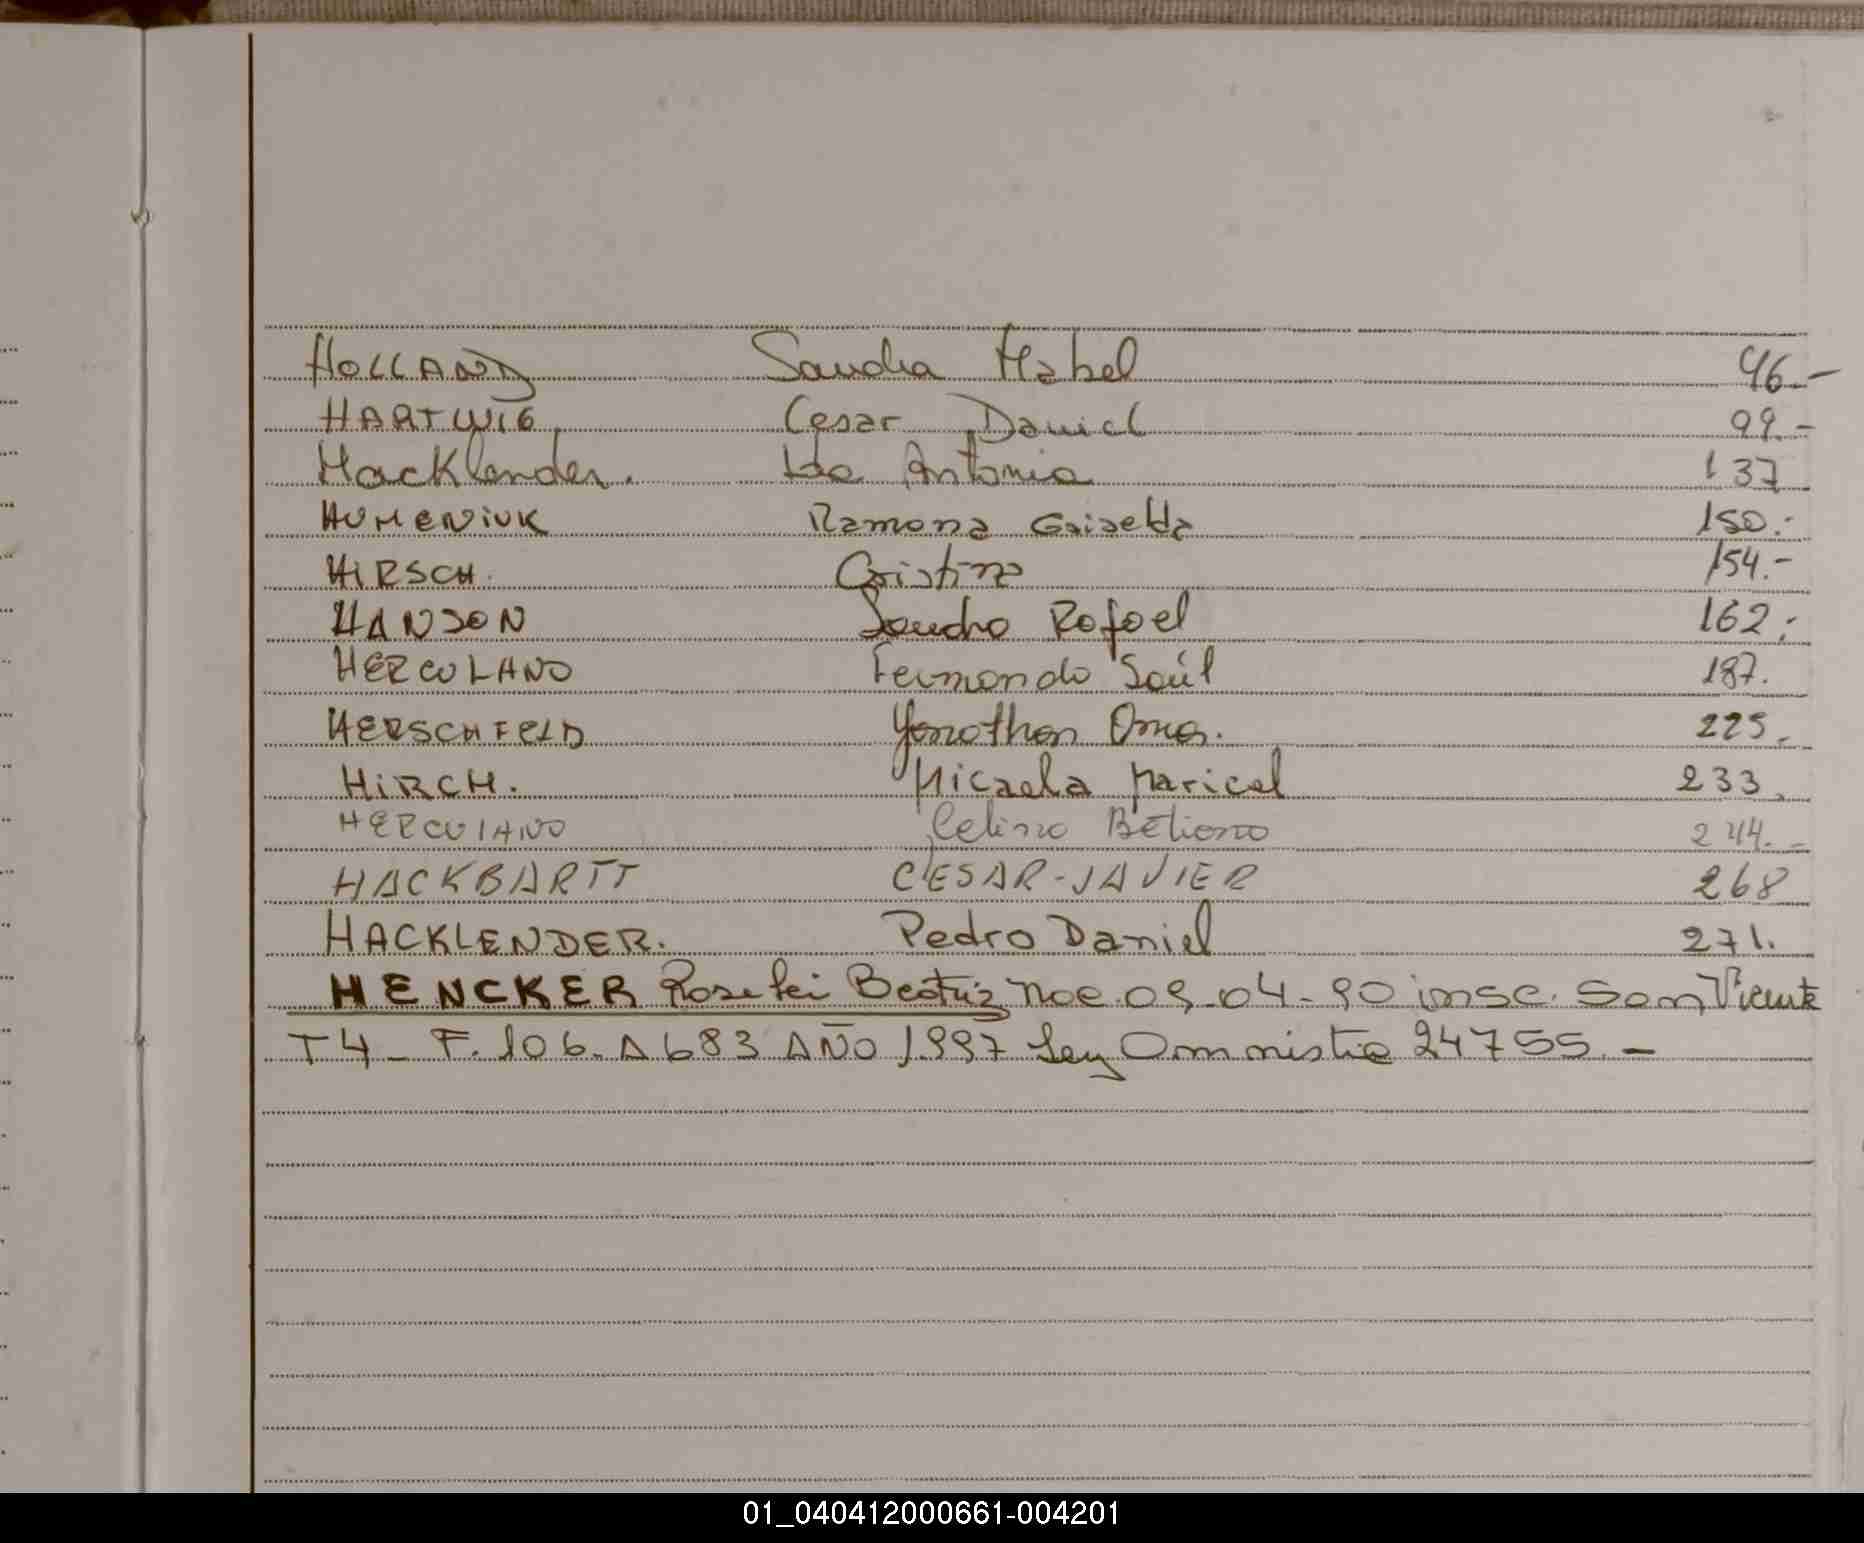 HOLLAND Sandra Mabel 46.-
HARTWIG Cesar Daniel 99.-
Hacklender. Ida Antonia 137
HUMENIUK Ramona Griselda 150.-
HIRSCH. Cristina 154.-
HANSON Sandro Rafael 162.-
HERCULANO Fernando Saúl 187.
HERSCHFELD Yonathan Omar. 225.
HIRCH. Micaela Maricel 233.
HERCULANO Betiana 244.-
HACKBARTT CESAR-JAVIER 268
HACKLENDER. Pedro Daniel 271.
HENCKER Roselei Beatriz Nac. 09-04-90 insc. San Vicente
T4- F. 106. A 683 AÑO 1.997 Ley Amnistia 24755.-
01_040412000661-004201